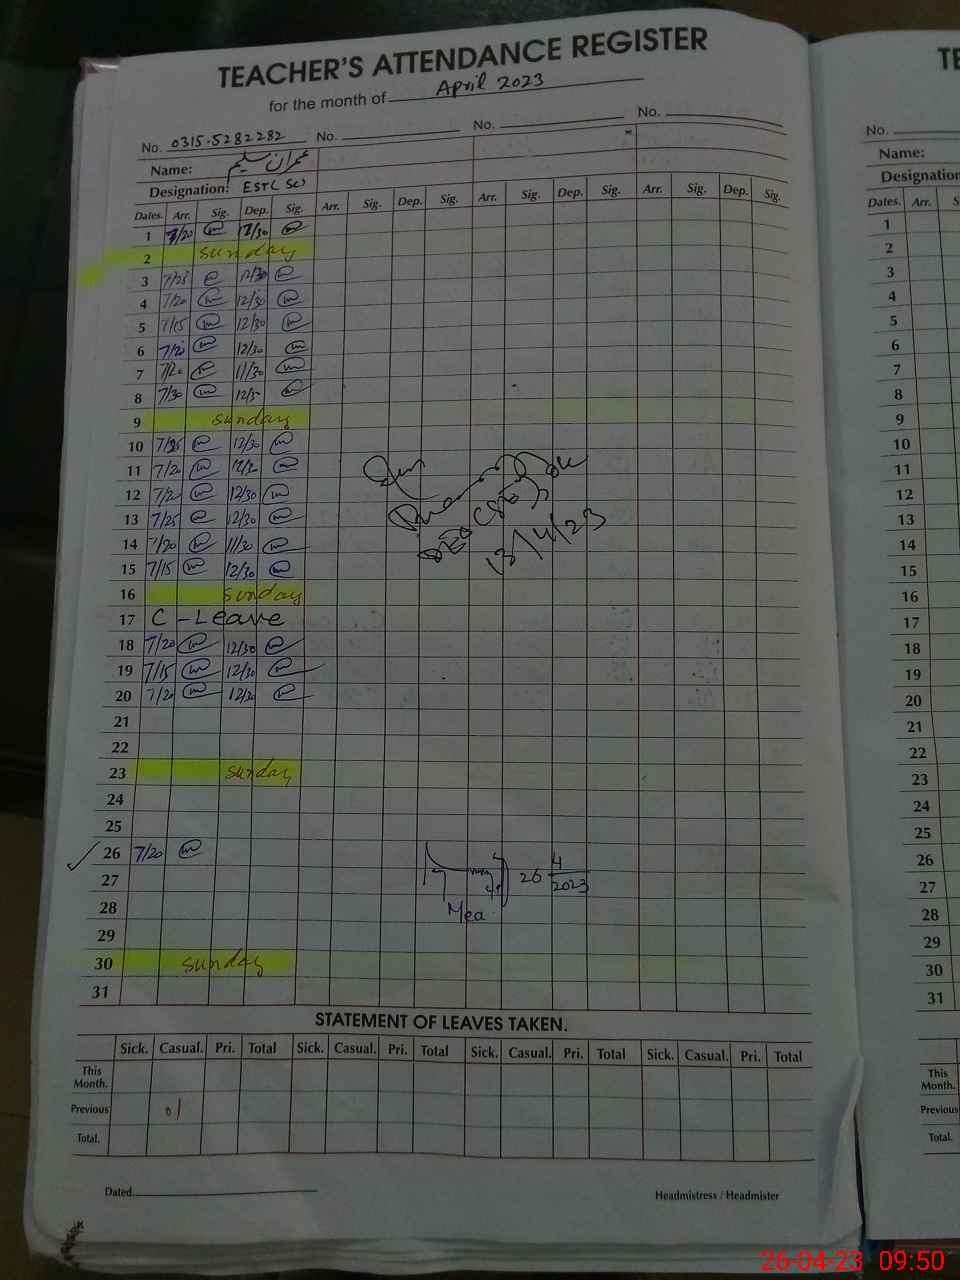 TEACHER'S ATTENDANCE REGISTER
for the month of April 2023
No. 0315-5282282 No. No. No.
Name: عمران سلیم
Designation: EST( Sc)
Dates. Arr. Sig. Dep. Sig. Arr. Sig. Dep. Sig. Arr. Sig. Dep. Sig. Arr. Sig. Dep. Sig.
1 7/20
2 sunday
3 7/25 12/30
4 7/20 12/30
5 7/15 12/30
6 7/20 12/30
7 7/20 11/30
8 7/30
9 sunday
10 7/25 12/30
11 7/20
12 7/20 12/30
13 7/25 12/30
14 7/20 11/30
15 7/15 12/30
16 sunday
17 C - Leave
18 7/20 12/30
19 7/15 12/30
20 7/20 12/30
21
22
23 sunday
24
25
26 7/20
27
28
29
30 sunday
31
13/4/23
26 4/2023
Mea
STATEMENT OF LEAVES TAKEN.
Sick. Casual. Pri. Total Sick. Casual. Pri. Total Sick. Casual. Pri. Total Sick. Casual. Pri. Total
This Month.
Previous 01
Total.
Dated
Headmistress / Headmister
TE
No.
Name:
Designation
Dates. Arr. S
1
2
3
4
5
6
7
8
9
10
11
12
13
14
15
16
17
18
19
20
21
22
23
24
25
26
27
28
29
30
31
This Month.
Previous
Total.
26-04-23 09:50